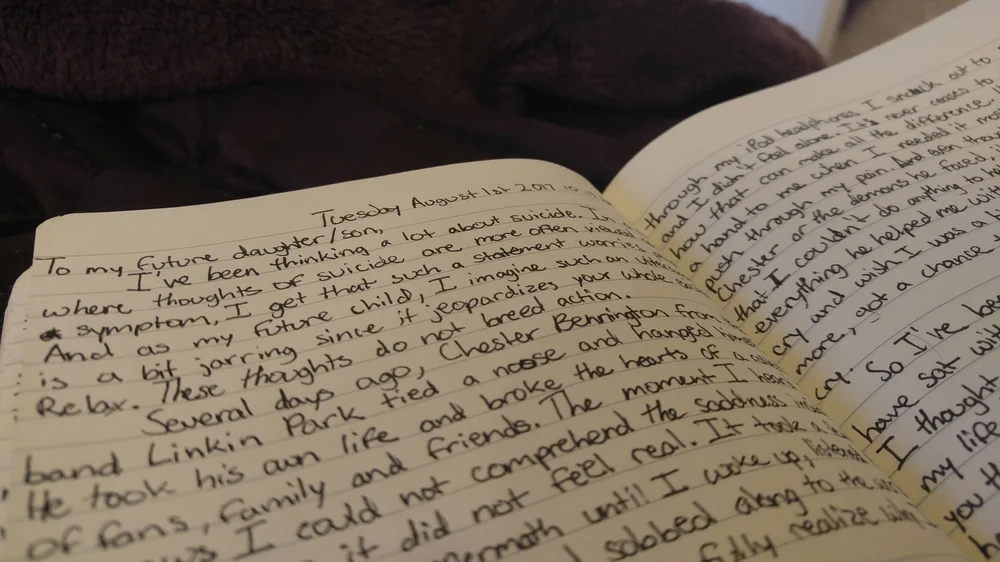 Tuesday August 1st 2017
To my future daughter/son,
I've been thinking a lot about suicide. In
where thoughts of suicide are more often
a symptom, I get that such a statement
And as my future child, I imagine such an
is a bit jarring since it jeopardizes your whole
Relax. These thoughts do not breed action.
Several days ago, Chester Bennington from
band Linkin Park tied a noose and hanged
He took his own life and broke the hearts of a
of fans, family and friends. The moment I
I could not comprehend the sadness
it did not feel real. It took a
until I woke up,
sobbed along to the
fully realize
through my iPod headphones I snuck out to
and I didn't feel alone. It's never ceases to
how that can make all the difference.
a hand to me when I needed it
push through my pain. And even
Chester or the demons he faced,
that I couldn't do anything to
everything he helped me
cry and wish I was a
more, got a chance
cry.
So I've
have sat
I thought
my life
you